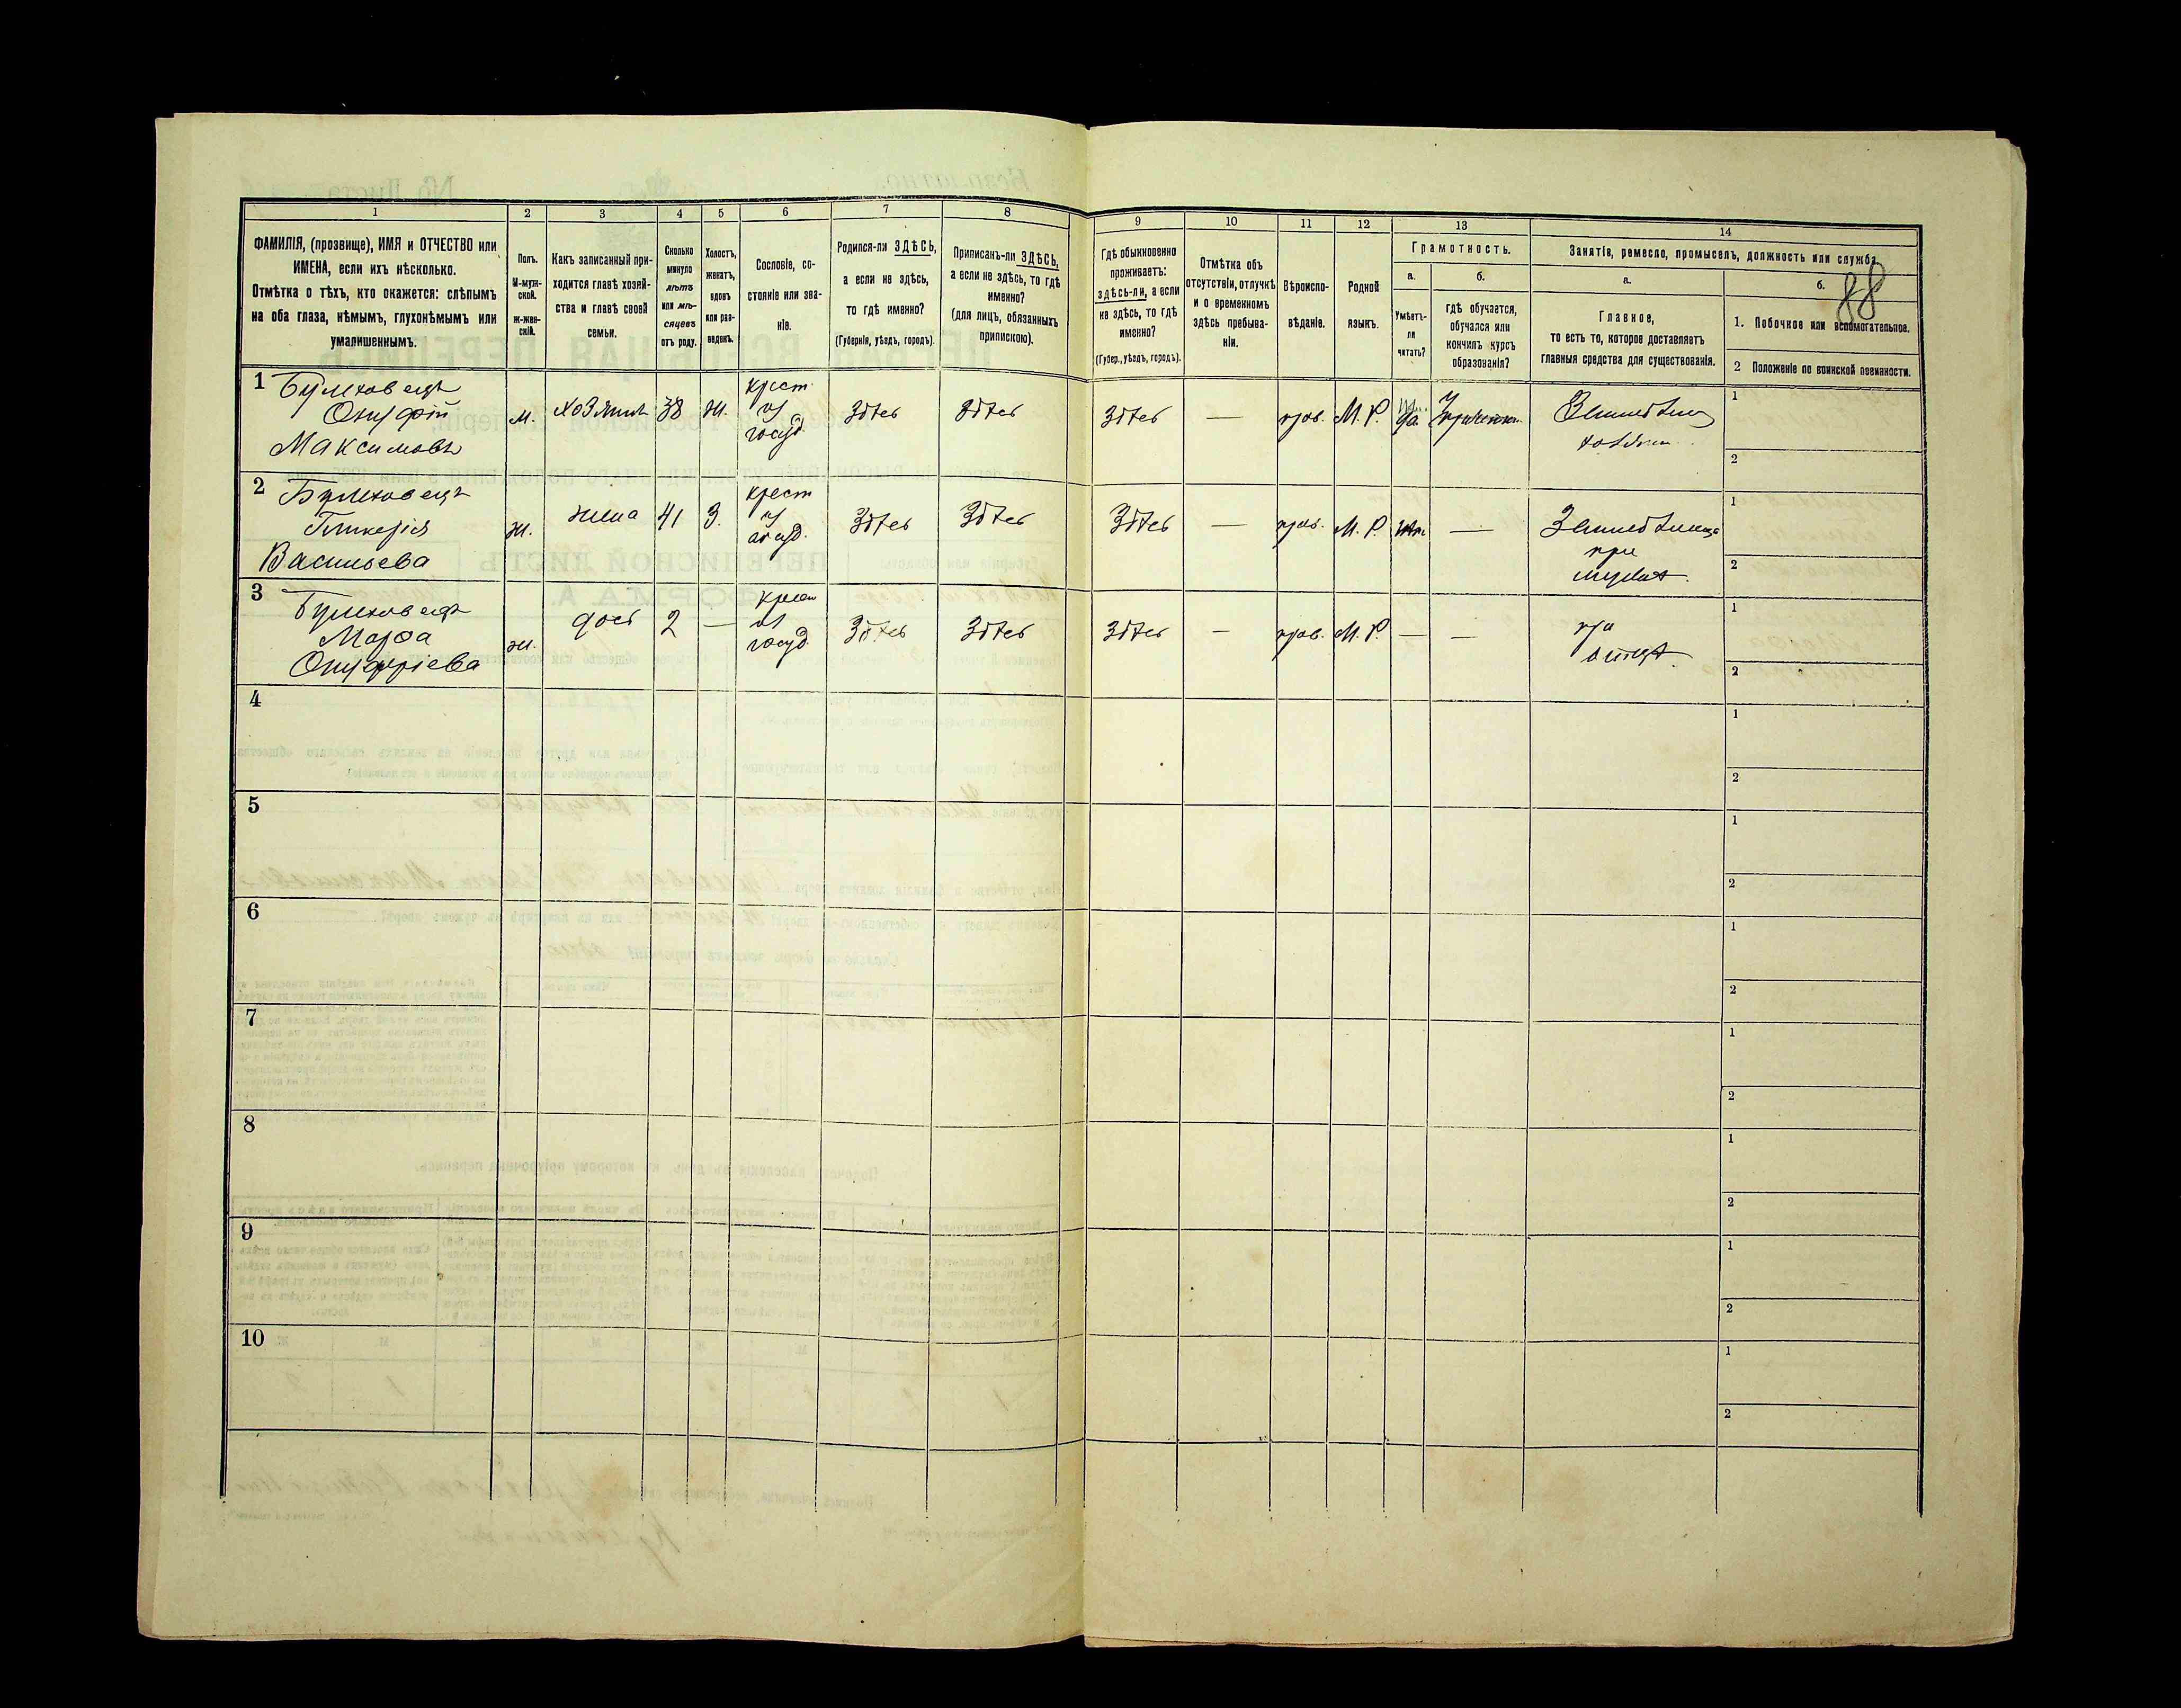 1
2
3
4
5
6
7
8
9
10
11
12
13
14
ФАМИЛІЯ, (прозвище), ИМЯ и ОТЧЕСТВО или
ИМЕНА, если ихъ нѣсколько.
Отмѣтка о тѣхъ, кто окажется: слѣпымъ
на оба глаза, нѣмымъ, глухонѣмымъ или
умалишеннымъ.
Полъ.
М-муж-
ской.
ж-жен-
скій.
Какъ записанный при-
ходится главѣ хозяй-
ства и главѣ своей
семьи.
Сколько
минуло
лѣтъ
или мѣ-
сяцевъ
отъ роду.
Холостъ,
женатъ,
вдовъ
или раз-
веденъ.
Сословіе, со-
стояніе или зва-
ніе.
Родился-ли ЗДѢСЬ,
а если не здѣсь,
то гдѣ именно?
(Губернія, уѣздъ, городъ).
Приписанъ-ли ЗДѢСЬ,
а если не здѣсь, то гдѣ
именно?
(для лицъ, обязанныхъ
припискою).
Гдѣ обыкновенно
проживаетъ:
здѣсь-ли, а если
не здѣсь, то гдѣ
именно?
(Губер., уѣздъ, городъ).
Отмѣтка объ
отсутствіи, отлучкѣ
и о временномъ
здѣсь пребыва-
ніи.
Вѣроиспо-
вѣданіе.
Родной
языкъ.
Грамотность.
а.
Умѣетъ-
ли
читать?
б.
гдѣ обучается,
обучался или
кончилъ курсъ
образованія?
Занятія, ремесло, промыселъ, должность или служба.
а.
Главное,
то есть то, которое доставляетъ
главныя средства для существованія.
б.
88
1. Побочное или вспомогательное.
2 Положеніе по воинской повинности.
1
Онуфрій
Максимовъ
м.
хозяинъ
38
ж.
крест
из
госуд
здѣсь
здѣсь
здѣсь
—
прав.
М. Р.
да
1
2
2
Гликерія
Васильева
ж.
жена
41
З.
крест
из
госуд.
здѣсь
здѣсь
здѣсь
—
прав.
М. Р.
—
при
мужѣ
1
2
3
Марфа
Онуфріева
ж.
дочь
2
—
крест
из
госуд
здѣсь
здѣсь
здѣсь
—
прав.
М. Р.
—
—
при
отцѣ
1
2
4
1
2
5
1
2
6
1
2
7
1
2
8
1
2
9
1
2
10
1
2